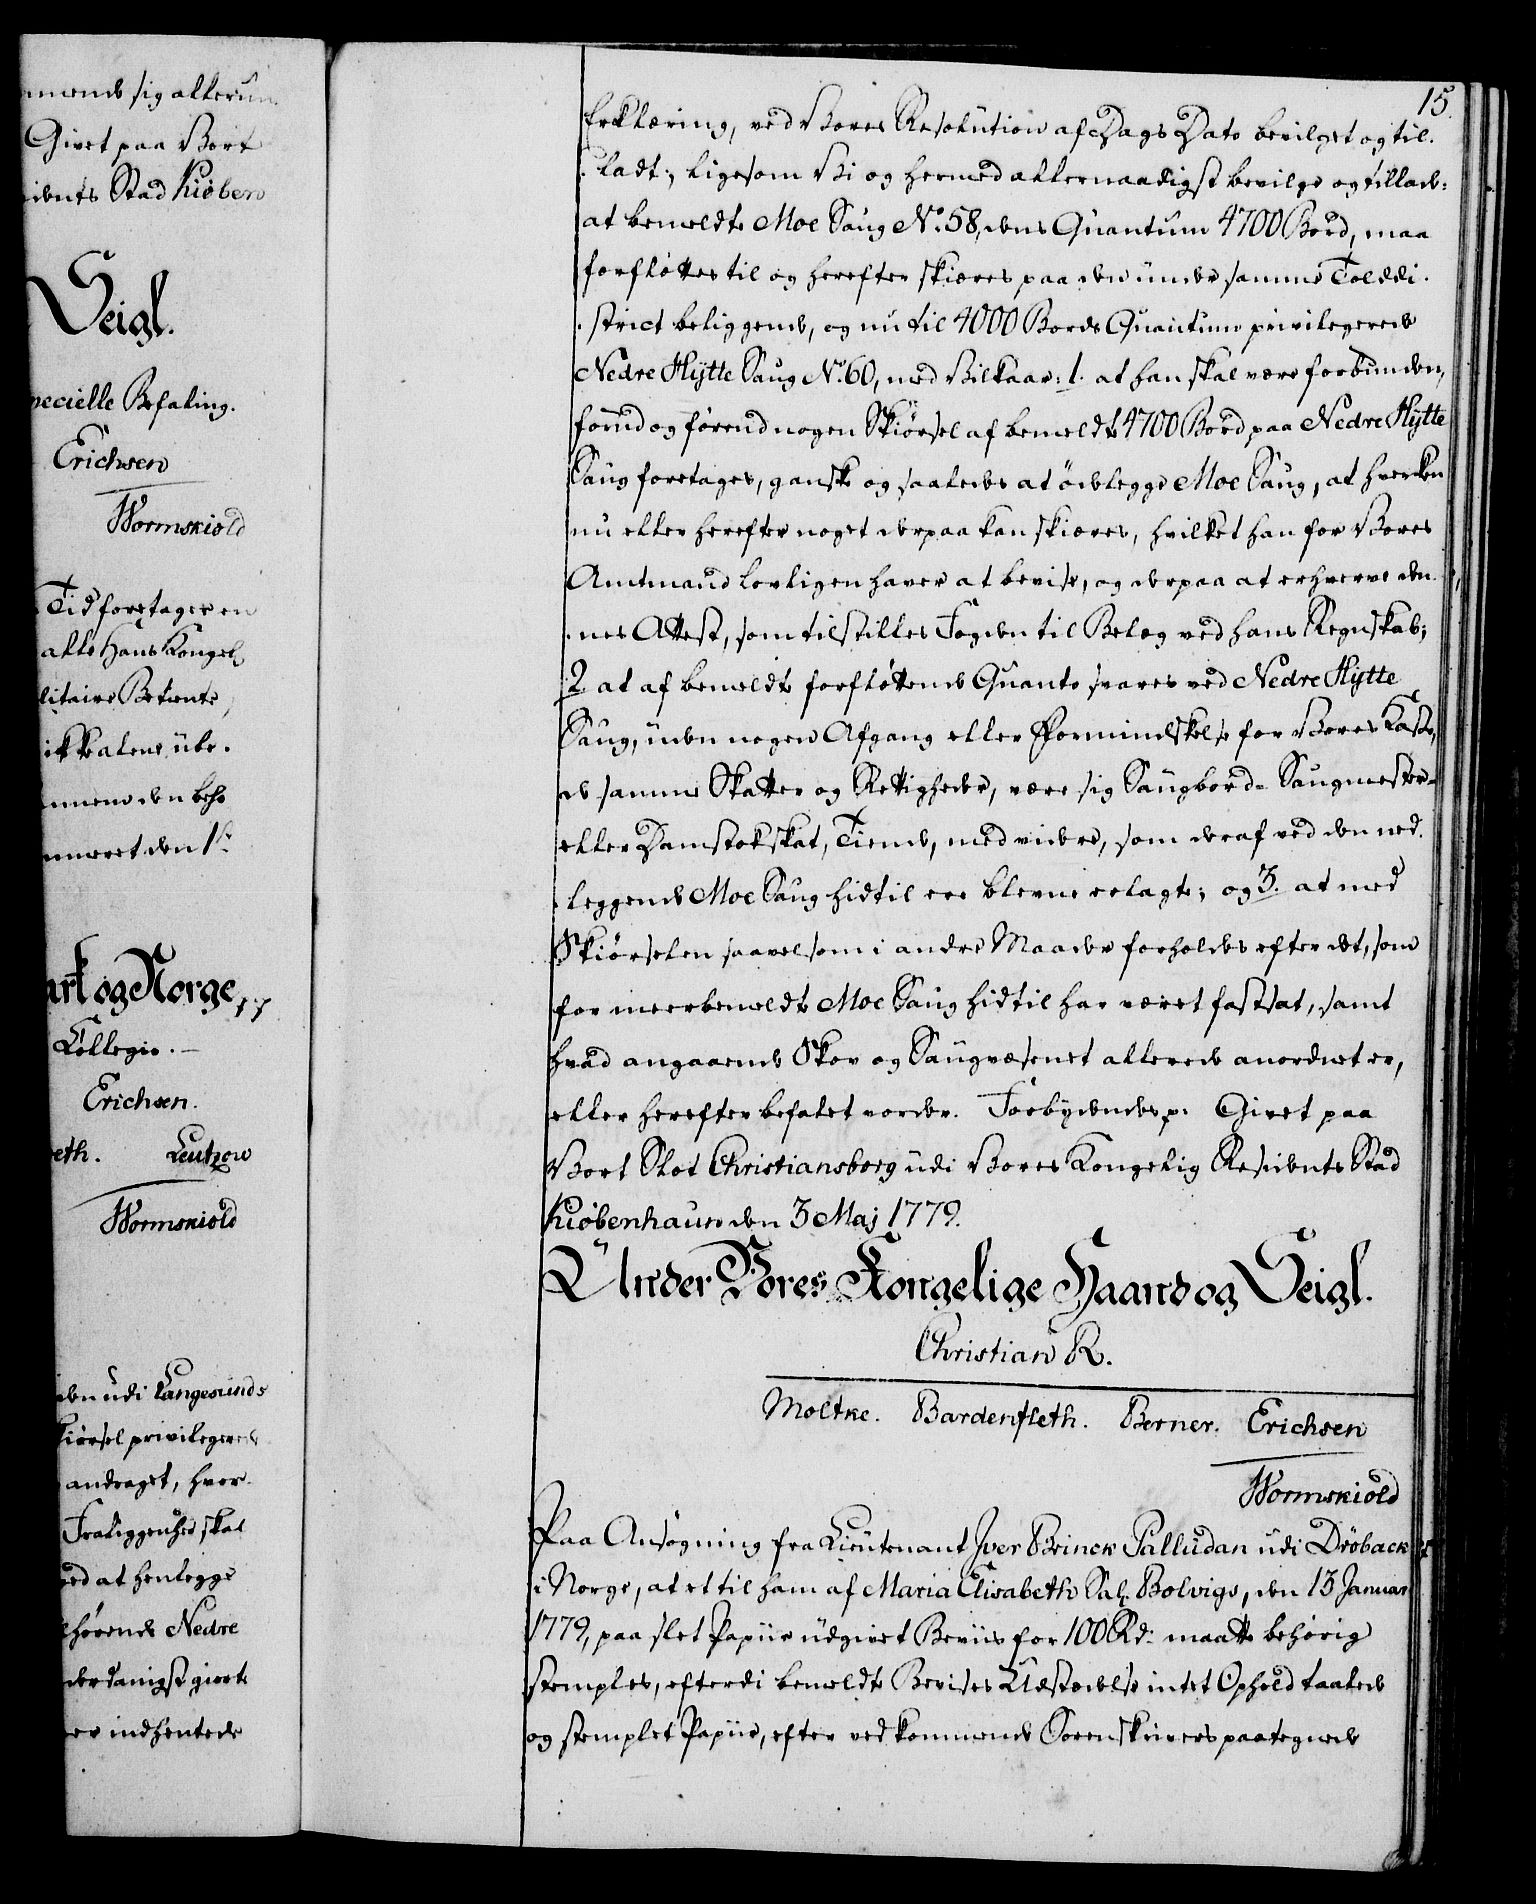 amende sig allerun
Givet paa Vort
idents Stad Kiøben
Seigl.
pecielle Befaling.
Erichsen
Wormskiold
Tid foretager en
alle Hans Kongel.
litaire Betiente,
ikke alene übe-
nuneret den 1st
ark og Norge,
Collegio.
Erichsen.
eth. Leutzow
Wormskiold
den udi Langesunds
kiørsel privilegerede
andraget, hvor-
Fraliggenhed skal
ved at henlegge
lhørende Nedre
derdanigst givet
er indhentede
15.
Erklæring, ved Vores Resolution af Dags Dato bevilget og til-
-ladt; ligesom Vi og hermed allernaadigst bevilge og tillade:
at bemeldte Moe Saug No. 58, dens Quantum 4700 Bord, maa
forfløttes til og herefter skiæres paa den under samme Tolddi-
-strict beliggende, og nu til 4000 Bords Quantum privilegerede
Nedre Hytte Saug No. 60, med Vilkaar: 1. at han skal være forbunden,
forud og førend nogen Skiørsel af bemeldte 4700 Bord paa Nedre Hytte
Saug foretages, ganske og saaledes at ödelegge Moe Saug, at hverken
nu eller herefter noget derpaa kan skiæres, hvilket han for Vores
Amtmand lovligen haver at bevise, og derpaa at erhverve den-
-nes Attest, som tilstilles Fogden til Belæg ved hans Regnskab;
2. at af bemeldte forfløttende Quanto svares ved Nedre Hytte
Saug, uden nogen Afgang eller Formindskelse for Vores Kasse,
de samme Skatter og Rettigheder, være sig Saugbord- Saugmester-
eller Damstokskat, Tiende, med videre, som deraf ved den ned-
-leggende Moe Saug hidtil ere blevne erlagte; og 3. at med
Skiørselen saavelsom i andre Maader forholdes efter det, som
for meerbemeldte Moe Saug hidtil har været fastsat, samt
hvad angaaende Skov og Saugvæsenet allerede anordnet er,
eller herefter befalet vorder. Forbydendes p. Givet paa
Vort Slot Christiansborg udi Vores Kongelig Residents Stad
Kiøbenhaun den 3 Maj 1779.
Under Vores Kongelige Haand og Seigl.
Christian R.
Moltke. Bardenfleth. Berner. Erichsen
Wormskiold
Paa Ansøgning fra Lieutenant Iver Brinck Palludan udi Dröback
i Norge, at et til ham af Maria Elisabeth Sal. Bolvigs, den 13 Januar
1779, paa slet Papiir udgivet Beviis for 100 Rd. maatte behørig
stemples, efterdi bemeldte Bevises Udstædelse intet Ophold taalede
og stemplet Papiir, efter vedkommende Sorenskrivers paategnede